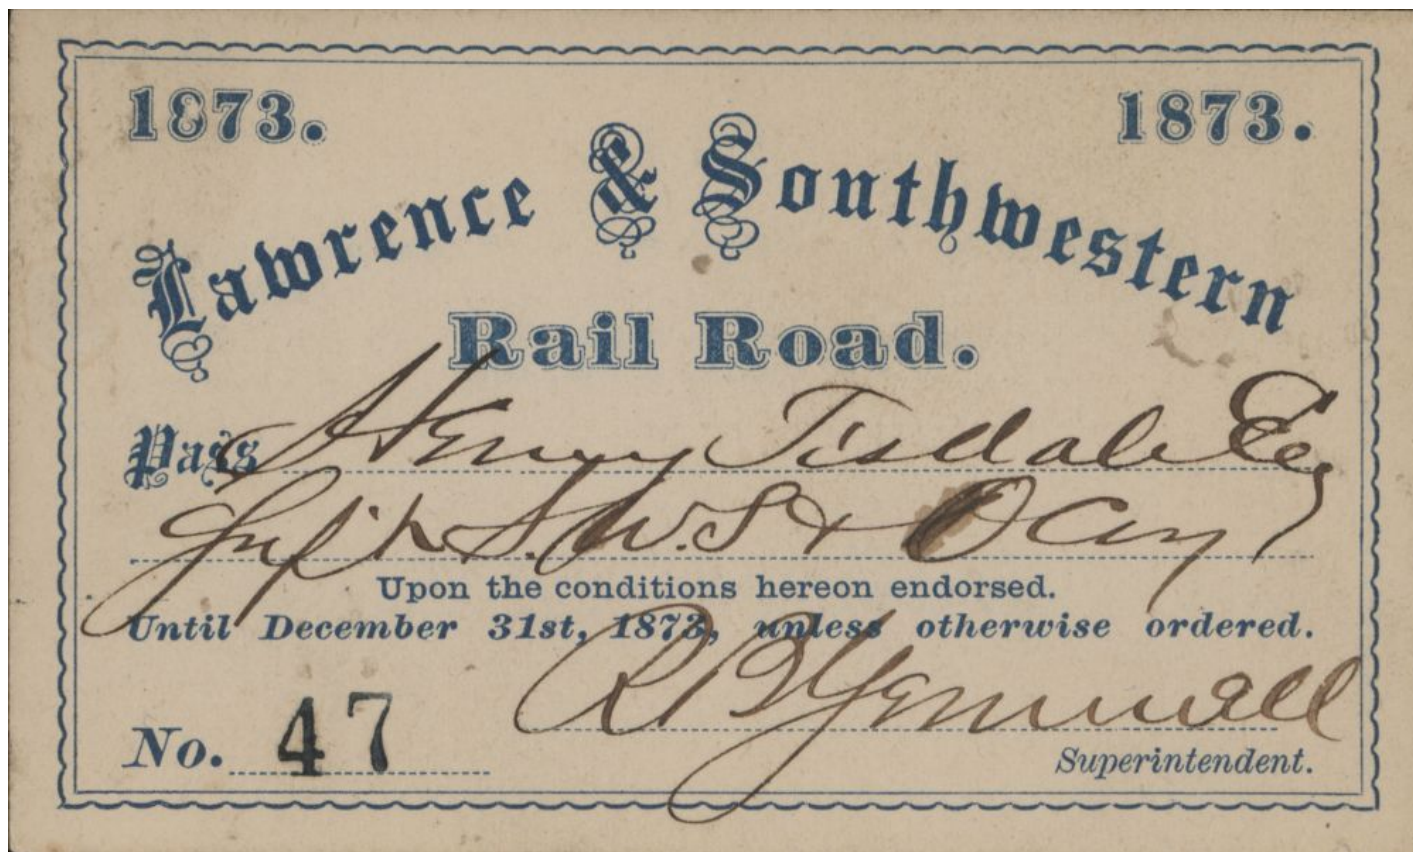 1873. 1873.
Lawrence & Southwestern
Rail Road.
Pass Henry Tisdale Esq
Sup't S.W.S &
Upon the conditions hereon endorsed.
Until December 31st, 1873, unless otherwise ordered.
No. 47
Superintendent.